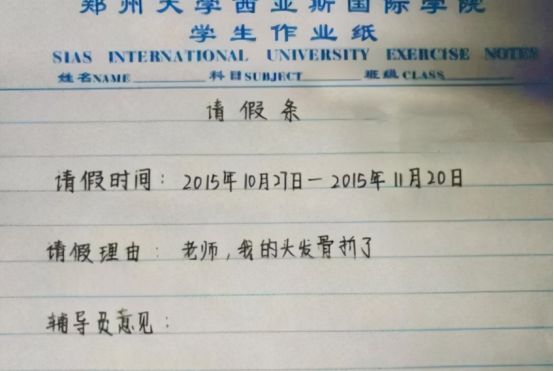 郑州大学西亚斯国际学院
学生作业纸
SIAS INTERNATIONAL UNIVERSITY EXERCISE NOTES
姓名NAME 科目SUBJECT 班级CLASS
请假条
请假时间：2015年10月27日－2015年11月20日
请假理由：老师，我的头发骨折了
辅导员意见：